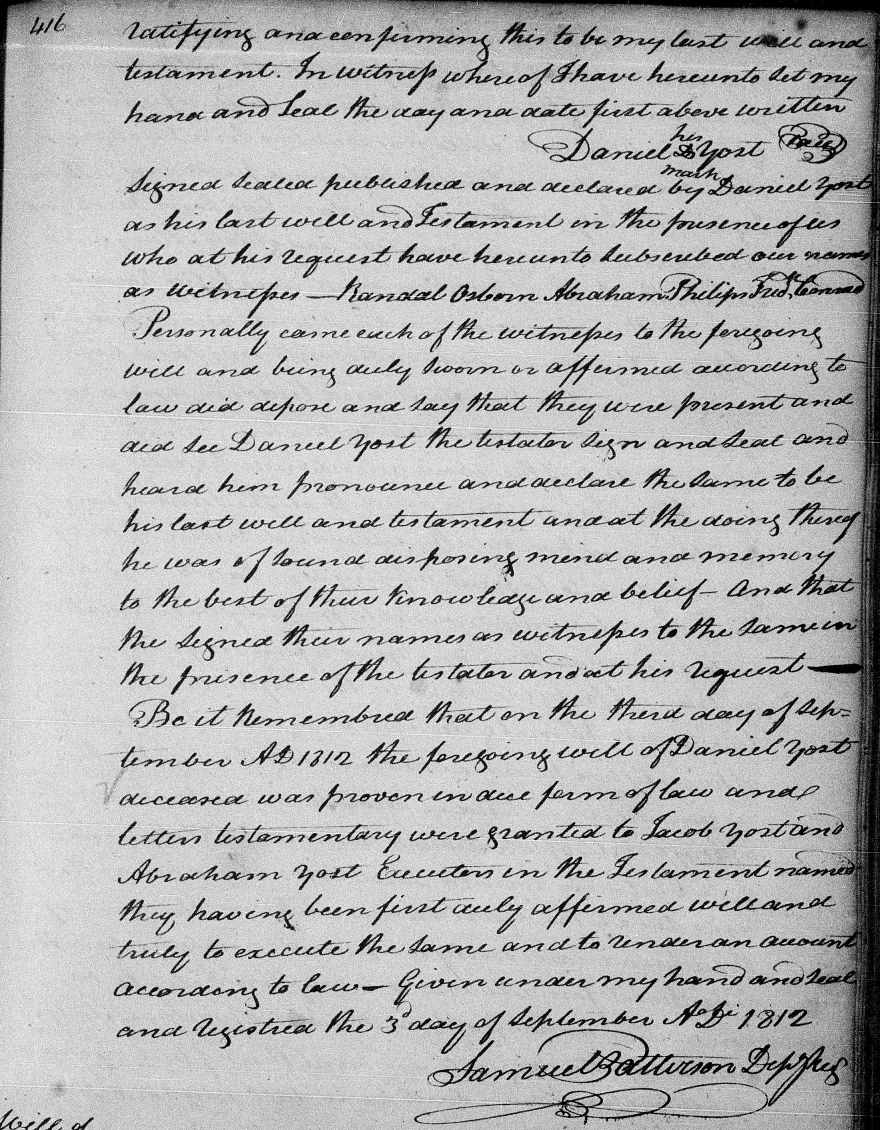 416
ratifying and confirming this to be my last will and
testament. In witness whereof I have hereunto set my
hand and Seal the day and date first above written
his
Daniel D Yost Seal
mark
Signed Sealed published and declared by Daniel Yost
as his last will and Testament in the presence of us
who at his request have hereunto subscribed our names
as witnesses — Randal Osborn Abraham Philips Fredk. Conrad
Personally came each of the witnesses to the foregoing
will and being duly sworn or affirmed according to
law did depose and say that they were present and
did see Daniel Yost the testator sign and seal and
heard him pronounce and declare the same to be
his last will and testament and at the doing thereof
he was of sound disposing mind and memory
to the best of their knowledge and belief — And that
the signed their names as witnesses to the same in
the presence of the testator and at his request —
Be it Remembred that on the third day of Sep=
tember AD 1812 the foregoing will of Daniel Yost
deceased was proven in due form of law and
letters testamentary were granted to Jacob Yost and
Abraham Yost Executors in the Testament named
they having been first duly affirmed well and
truly to execute the same and to render an account
according to law — Given under my hand and seal
and registred the 3d day of September Ao Di 1812
Samuel Patterson Depy Reg
Will of